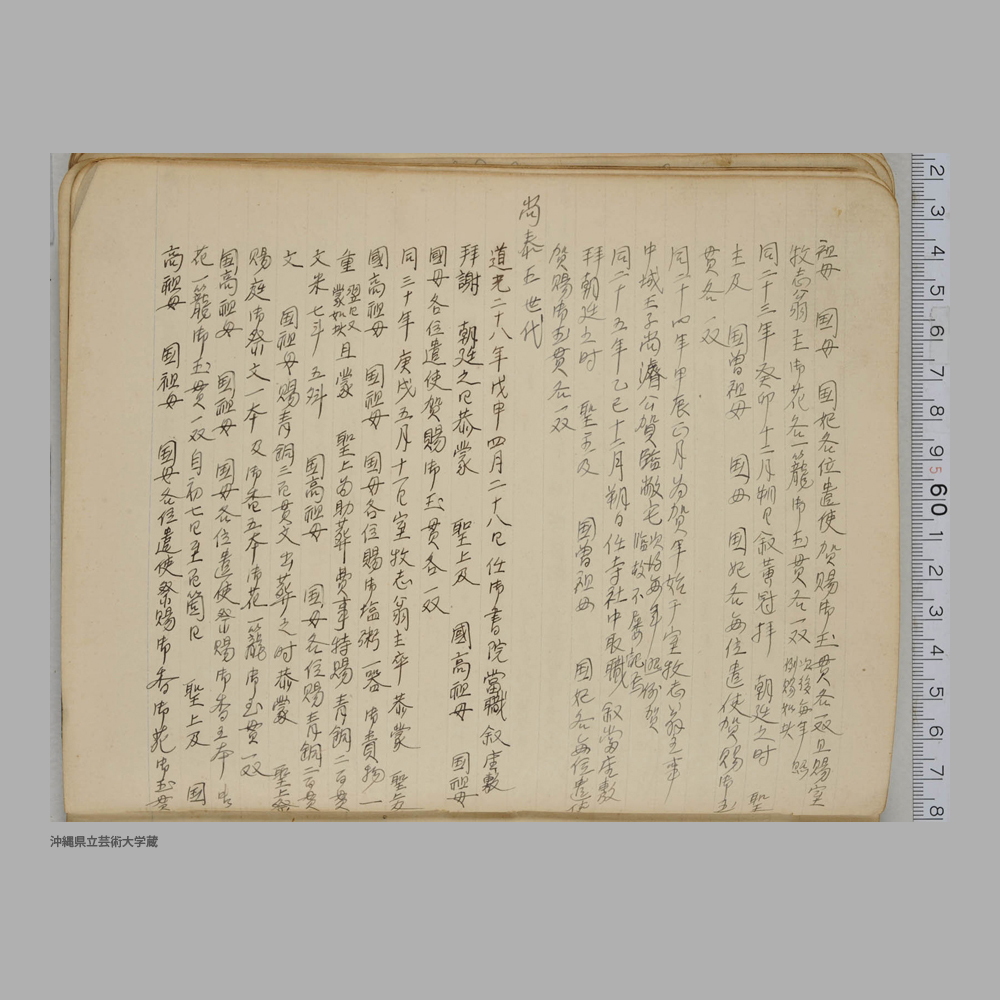 祖母　国母　国妃各位遣使賀賜御玉貫各一双且賜室
牧志翁主御花各一籠御玉貫各一双 次後毎年照例賜如此
同二十三年癸卯十二月朔日叙黄冠拝　朝廷之時　聖
主及　国曽祖母　国母　国妃各毎位遣使賀賜御玉
貫各一双
同二十四年甲辰正月為賀年始于室牧志翁主事
中城王子尚濬公賀臨敝宅 次後毎年照例賀臨故不屡記焉
同二十五年乙巳十二月朔日任寺社中取職叙当座敷
拝朝廷之时　聖主及　国曽祖母　国妃各毎位遣使
賀賜御玉貫各一双
尚泰王世代
道光二十八年戊申四月二十八日任御書院當職叙座敷
拝謝　朝廷之日恭蒙　聖上及　國高祖母　国祖母
國母各位遣使賀賜御玉貫各一双
同三十年庚戌五月十一日室牧志翁主卒恭蒙　聖上
國高祖母　国祖母　国母各位賜御塩粥一器　御責物一
重 翌日又蒙如此 且蒙　聖上為助葬費事特賜青銅二百貫
文米七斗五斜　国高祖母　国母各位賜青銅二百貫
文　国祖母賜青銅二百貫文出葬之时恭蒙　聖上
賜庭御祭文一本及御香五本御花一籠御玉貫一双
国高祖母　国祖母　国母各位遣使祭賜御香五本御
花一籠御玉貫一双自初七日至七箇日　聖上及　国
高祖母　国祖母　国母各位遣使祭賜御香御花御玉貫
沖縄県立芸術大学蔵